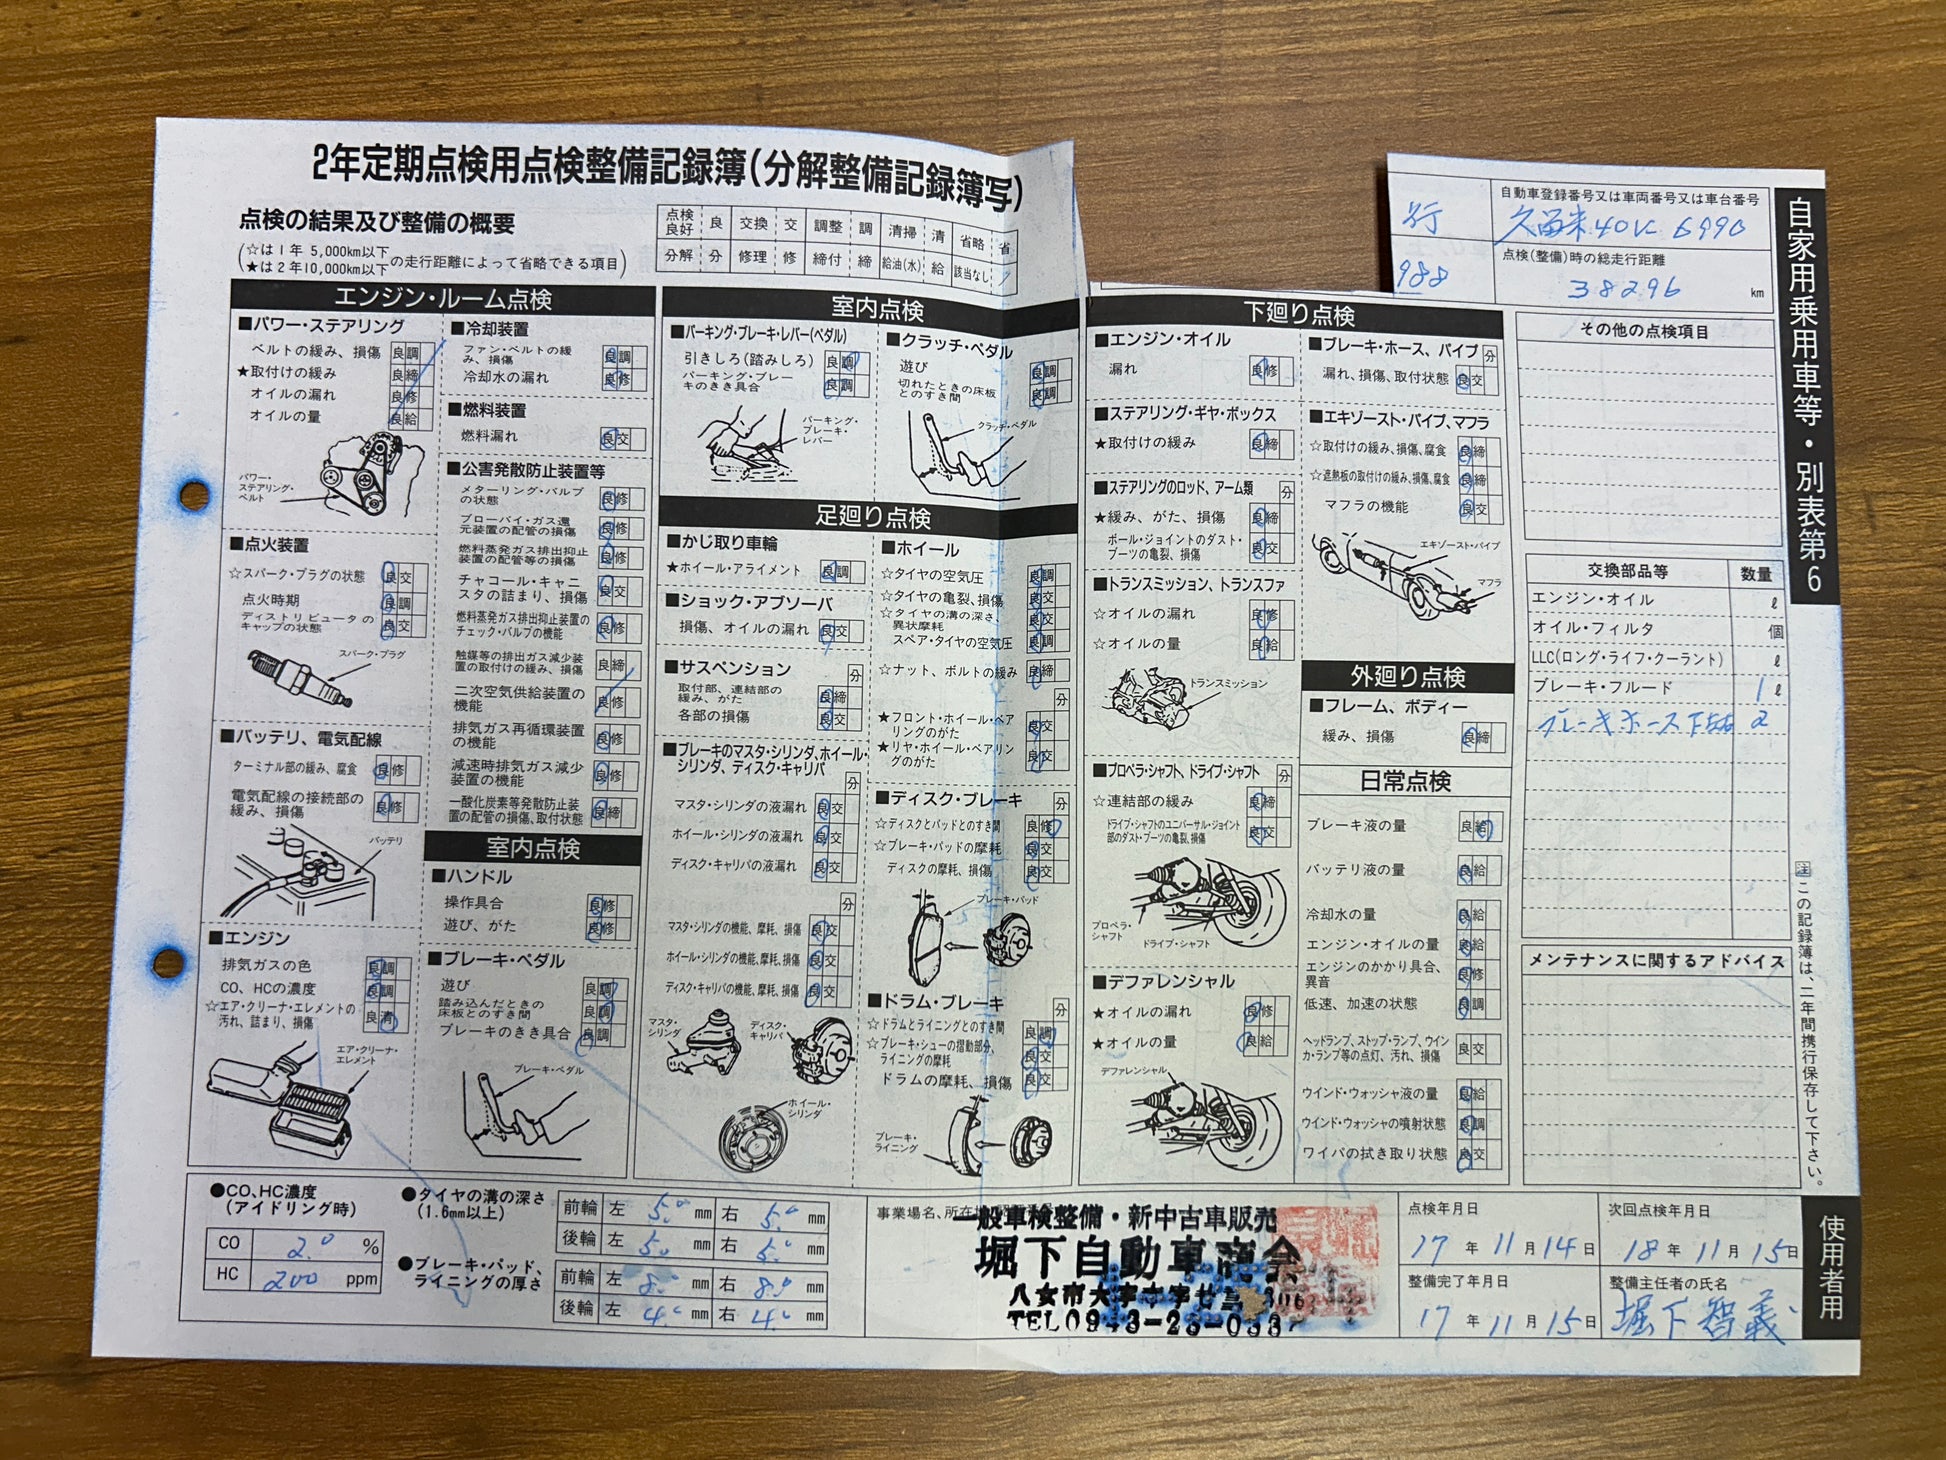 2年定期点検用点検整備記録簿(分解整備記録簿写)
点検の結果及び整備の概要
(☆は1年 5,000km以下
★は2年10,000km以下の走行距離によって省略できる項目)
点検良好 良 交換 交 調整 調 清掃 清 省略 省
分解 分 修理 修 締付 締 給油(水) 給 該当なし /
自動車登録番号又は車両番号又は車台番号
久留米40に6990
点検(整備)時の総走行距離
988
38296 km
自家用乗用車等・別表第6
エンジン・ルーム点検
■パワー・ステアリング
ベルトの緩み、損傷 良調
★取付けの緩み 良締
オイルの漏れ 良修
オイルの量 良給
パワー・ステアリング・ベルト
■点火装置
☆スパーク・プラグの状態 良交
点火時期 良調
ディストリビュータのキャップの状態 良交
スパーク・プラグ
■バッテリ、電気配線
ターミナル部の緩み、腐食 良修
電気配線の接続部の緩み、損傷 良修
バッテリ
■エンジン
排気ガスの色 良調
CO、HCの濃度 良調
☆エア・クリーナ・エレメントの汚れ、詰まり、損傷 良清
エア・クリーナ・エレメント
■冷却装置
ファン・ベルトの緩み、損傷 良調
冷却水の漏れ 良修
■燃料装置
燃料漏れ 良交
■公害発散防止装置等
メターリング・バルブの状態 良修
ブローバイ・ガス還元装置の配管の損傷 良修
燃料蒸発ガス排出抑止装置の配管等の損傷 良修
チャコール・キャニスタの詰まり、損傷 良交
燃料蒸発ガス排出抑止装置のチェック・バルブの機能 良修
触媒等の排出ガス減少装置の取付けの緩み、損傷 良締
二次空気供給装置の機能 良修
排気ガス再循環装置の機能 良修
減速時排気ガス減少装置の機能 良修
一酸化炭素等発散防止装置の配管の損傷、取付状態 良締
室内点検
■ハンドル
操作具合 良修
遊び、がた 良修
■ブレーキ・ペダル
遊び 良調
踏み込んだときの床板とのすき間 良調
ブレーキのきき具合 良調
ブレーキ・ペダル
室内点検
■パーキング・ブレーキ・レバー(ペダル)
引きしろ(踏みしろ) 良調
パーキング・ブレーキのきき具合 良調
パーキング・ブレーキ・レバー
■クラッチ・ペダル
遊び 良調
切れたときの床板とのすき間 良調
クラッチ・ペダル
足廻り点検
■かじ取り車輪
★ホイール・アライメント 良調
■ショック・アブソーバ
損傷、オイルの漏れ 良交
■サスペンション 分
取付部、連結部の緩み、がた 良締
各部の損傷 良交
■ブレーキのマスタ・シリンダ、ホイール・シリンダ、ディスク・キャリパ 分
マスタ・シリンダの液漏れ 良交
ホイール・シリンダの液漏れ 良交
ディスク・キャリパの液漏れ 良交
分
マスタ・シリンダの機能、摩耗、損傷 良交
ホイール・シリンダの機能、摩耗、損傷 良交
ディスク・キャリパの機能、摩耗、損傷 良交
マスタ・シリンダ
ディスク・キャリパ
ホイール・シリンダ
■ホイール
☆タイヤの空気圧 良調
☆タイヤの亀裂、損傷 良交
☆タイヤの溝の深さ、異状摩耗 良交
スペア・タイヤの空気圧 良調
☆ナット、ボルトの緩み 良締
分
★フロント・ホイール・ベアリングのがた 良交
★リヤ・ホイール・ベアリングのがた 良交
■ディスク・ブレーキ 分
☆ディスクとパッドとのすき間 良修
☆ブレーキ・パッドの摩耗 良交
ディスクの摩耗、損傷 良交
ブレーキ・パッド
■ドラム・ブレーキ 分
☆ドラムとライニングとのすき間 良調
☆ブレーキ・シューの摺動部分、ライニングの摩耗 良交
ドラムの摩耗、損傷 良交
ブレーキ・ライニング
下廻り点検
■エンジン・オイル
漏れ 良修
■ステアリング・ギヤ・ボックス
★取付けの緩み 良締
■ステアリングのロッド、アーム類 分
★緩み、がた、損傷 良締
ボール・ジョイントのダスト・ブーツの亀裂、損傷 良交
■トランスミッション、トランスファ
☆オイルの漏れ 良修
☆オイルの量 良給
トランスミッション
■プロペラ・シャフト、ドライブ・シャフト 分
☆連結部の緩み 良締
ドライブ・シャフトのユニバーサル・ジョイント部のダスト・ブーツの亀裂、損傷 良交
プロペラ・シャフト
ドライブ・シャフト
■デファレンシャル
★オイルの漏れ 良修
★オイルの量 良給
デファレンシャル
■ブレーキ・ホース、パイプ 分
漏れ、損傷、取付状態 良交
■エキゾースト・パイプ、マフラ
☆取付けの緩み、損傷、腐食 良締
☆遮熱板の取付けの緩み、損傷、腐食 良締
マフラの機能 良交
エキゾースト・パイプ
マフラ
外廻り点検
■フレーム、ボディー
緩み、損傷 良締
日常点検
ブレーキ液の量 良給
バッテリ液の量 良給
冷却水の量 良給
エンジン・オイルの量 良給
エンジンのかかり具合、異音 良修
低速、加速の状態 良調
ヘッドランプ、ストップ・ランプ、ウインカ・ランプ等の点灯、汚れ、損傷 良交
ウインド・ウォッシャ液の量 良給
ウインド・ウォッシャの噴射状態 良調
ワイパの拭き取り状態 良交
その他の点検項目
交換部品等 数量
エンジン・オイル ℓ
オイル・フィルタ 個
LLC(ロング・ライフ・クーラント) ℓ
ブレーキ・フルード 1 ℓ
ブレーキホース下左右 2
メンテナンスに関するアドバイス
注 この記録簿は、二年間携行保存して下さい。
●CO、HC濃度(アイドリング時)
CO 2.0 %
HC 200 ppm
●タイヤの溝の深さ(1.6mm以上)
前輪 左 5.0 mm 右 5.0 mm
後輪 左 5.0 mm 右 5.0 mm
●ブレーキ・パッド、ライニングの厚さ
前輪 左 8.0 mm 右 8.0 mm
後輪 左 4.0 mm 右 4.0 mm
事業場名、所在地
一般車検整備・新中古車販売
堀下自動車商会
八女市大字
TEL0943-2
点検年月日
17年11月14日
次回点検年月日
18年11月15日
整備完了年月日
17年11月15日
整備主任者の氏名
堀下智義
使用者用